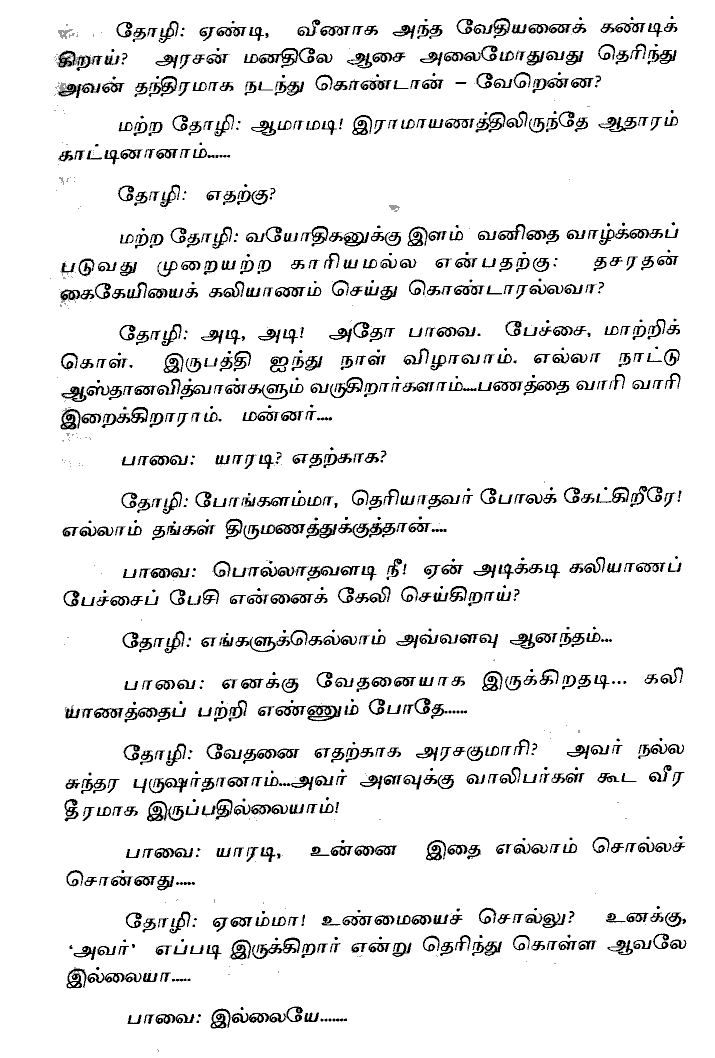 தோழி: ஏண்டி, வீணாக அந்த வேதியனைக் கண்டிக்
கிறாய்? அரசன் மனதிலே ஆசை அலைமோதுவது தெரிந்து
அவன் தந்திரமாக நடந்து கொண்டான் – வேறென்ன?
மற்ற தோழி: ஆமாமடி! இராமாயணத்திலிருந்தே ஆதாரம்
காட்டினானாம்......
தோழி: எதற்கு?
மற்ற தோழி: வயோதிகனுக்கு இளம் வனிதை வாழ்க்கைப்
படுவது முறையற்ற காரியமல்ல என்பதற்கு: தசரதன்
கைகேயியைக் கலியாணம் செய்து கொண்டாரல்லவா?
தோழி: அடி, அடி! அதோ பாவை. பேச்சை, மாற்றிக்
கொள். இருபத்தி ஐந்து நாள் விழாவாம். எல்லா நாட்டு
ஆஸ்தானவித்வான்களும் வருகிறார்களாம்....பணத்தை வாரி வாரி
இறைக்கிறாராம். மன்னர்....
பாவை: யாரடி? எதற்காக?
தோழி: போங்களம்மா, தெரியாதவர் போலக் கேட்கிறீரே!
எல்லாம் தங்கள் திருமணத்துக்குத்தான்....
பாவை: பொல்லாதவளடி நீ! ஏன் அடிக்கடி கலியாணப்
பேச்சைப் பேசி என்னைக் கேலி செய்கிறாய்?
தோழி: எங்களுக்கெல்லாம் அவ்வளவு ஆனந்தம்...
பாவை: எனக்கு வேதனையாக இருக்கிறதடி... கலி
யாணத்தைப் பற்றி எண்ணும் போதே......
தோழி: வேதனை எதற்காக அரசகுமாரி? அவர் நல்ல
சுந்தர புருஷர்தானாம்...அவர் அளவுக்கு வாலிபர்கள் கூட வீர
தீரமாக இருப்பதில்லையாம்!
பாவை: யாரடி, உன்னை இதை எல்லாம் சொல்லச்
சொன்னது.....
தோழி: ஏனம்மா! உண்மையைச் சொல்லு? உனக்கு,
‘அவர்’ எப்படி இருக்கிறார் என்று தெரிந்து கொள்ள ஆவலே
இல்லையா.....
பாவை: இல்லையே.......